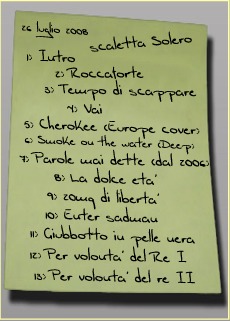 26 luglio 2008
scaletta Solero
1) Intro
2) Roccaforte
3) Tempo di scappare
4) Vai
5) Cherokee (Europe cover)
6) Smoke on the water (Deep)
7) Parole mai dette (dal 2006)
8) La dolce eta'
9) 20mg di liberta'
10) Enter sadman
11) Giubbotto in pelle nera
12) Per volonta' del Re I
13) Per volonta' del re II